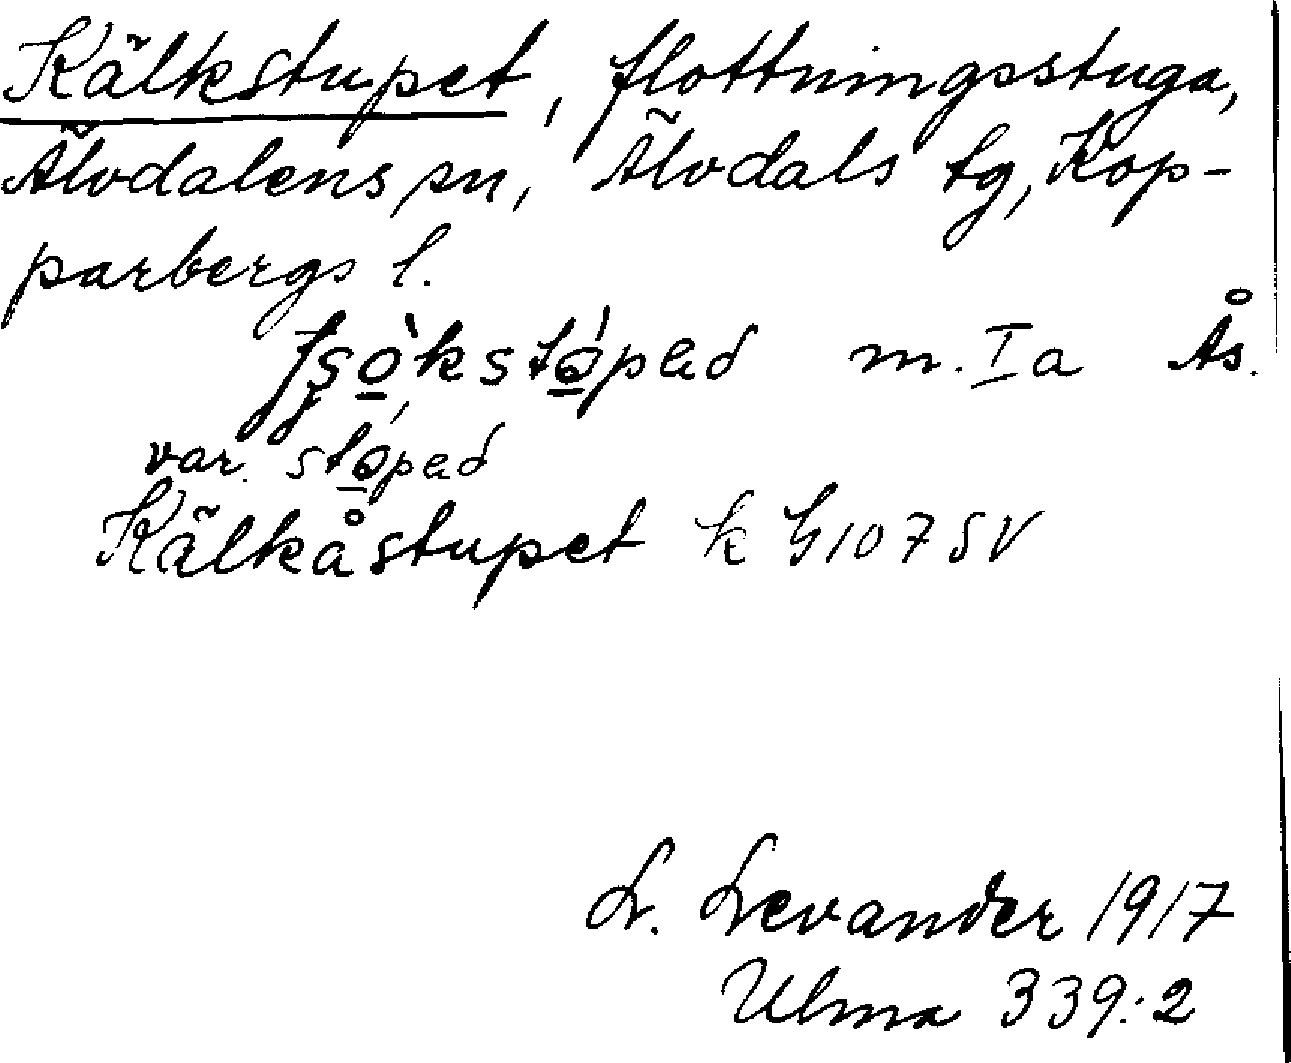 Kälkstupet, flottningsstuga,
Älvdalens sn, Älvdals tg, Kop-
parbergs l.
m. Ia Ås.
var. støpad
Kälkåstupet k G107SV
L. Levander 1917
Ulma 339:2